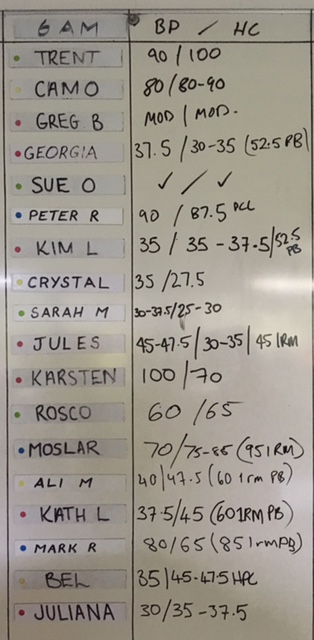 6 AM BP / HC
TRENT 90 / 100
CAMO 80 / 80-90
GREG. B MOD / MOD.
GEORGIA 37.5 / 30-35 (52.5 PB)
SUE O ✓ / ✓
PETER R 90 / 87.5 PCL
KIM L 35 / 35 - 37.5 / 52.5 PB
CRYSTAL 35 / 27.5
SARAH M 30-37.5 / 25-30
JULES 45-47.5 / 30-35 | 45 1RM
KARSTEN 100 / 70
ROSCO 60 / 65
MOSLAR 70 / 75-85 (95 1RM)
ALI M 40 / 47.5 (60 1rm PB)
KATH L 37.5 / 45 (60 1RM PB)
MARK R 80 / 65 (85 1rm PB)
BEL 35 | 45-47.5 HPC
JULIANA 30 / 35 - 37.5